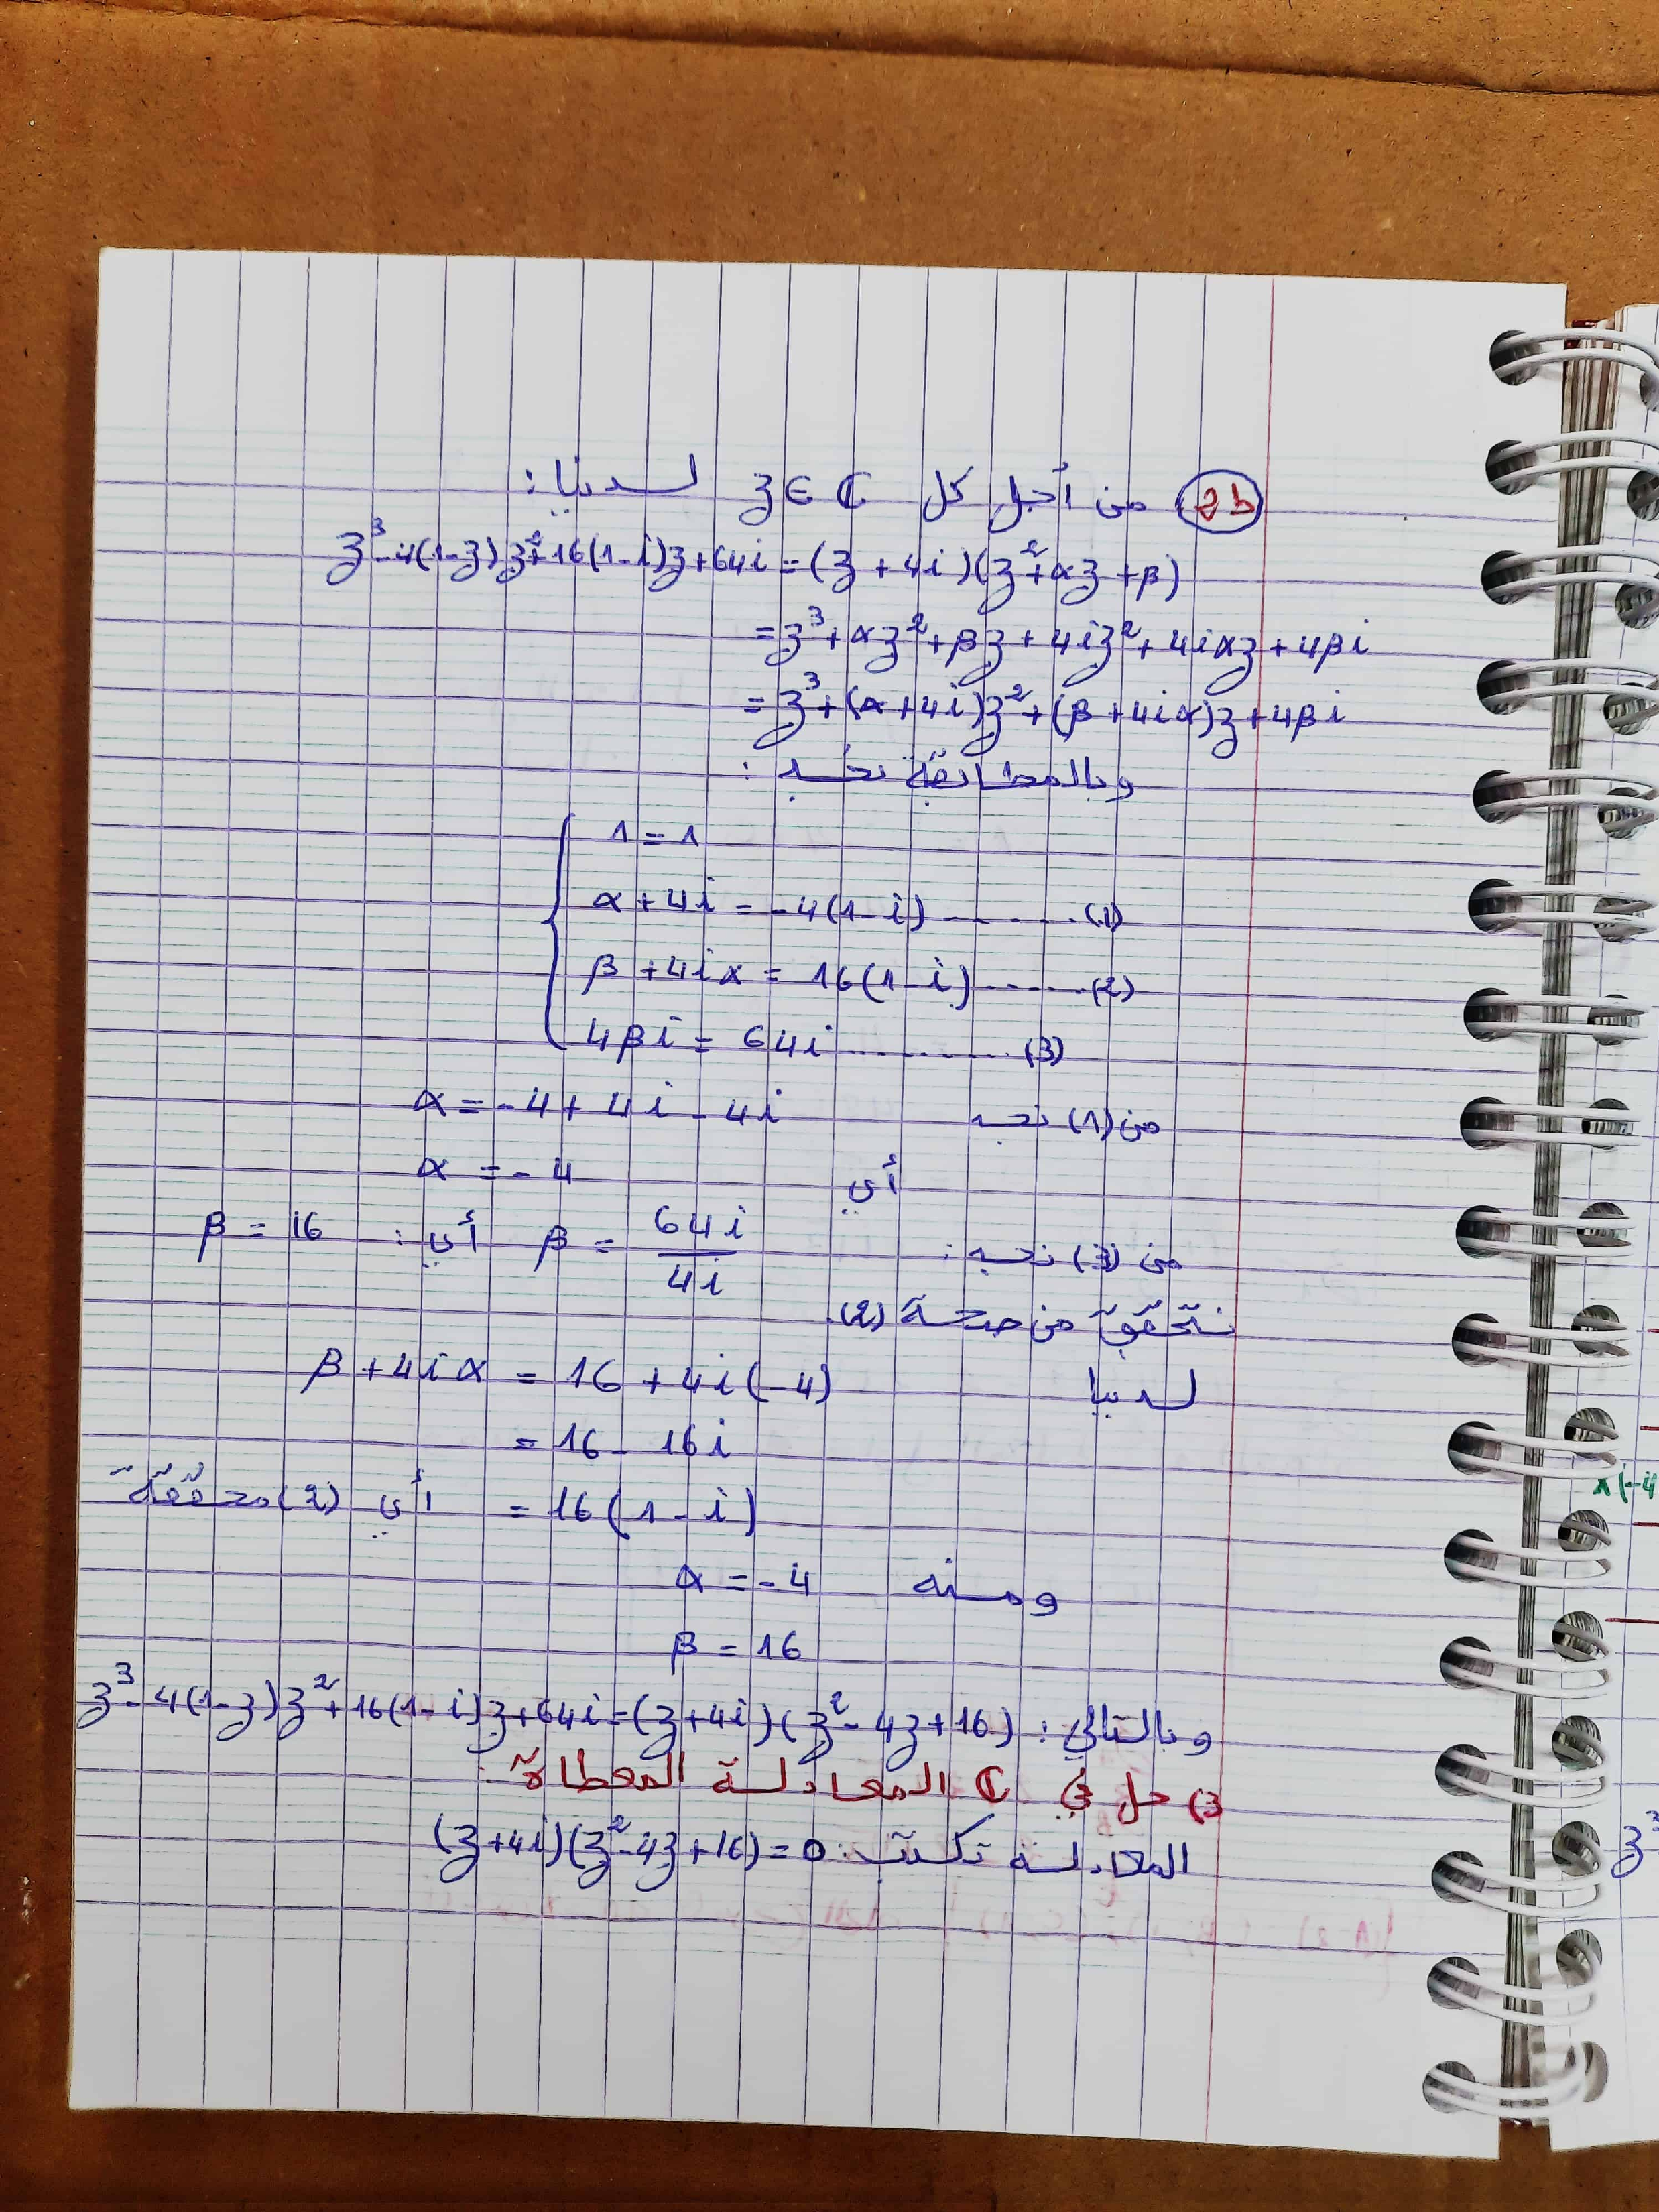 2b من أجل كل z ∈ ℂ لدينا:
z³-4(1-z)z²+16(1-i)z+64i=(z+4i)(z²+αz+β)
=z³+αz²+βz+4iz²+4iαz+4βi
=z³+(α+4i)z²+(β+4iα)z+4βi
وبالمطابقة نجد :
1=1
α+4i=-4(1-i) ------- (1)
β+4iα=16(1-i) ------ (2)
4βi=64i .......... (3)
من (1) نجد α=-4+4i-4i
أي α=-4
من (3) نجد : β=64i/4i أي : β=16
نتحقق من صحة (2).
لدينا β+4iα=16+4i(-4)
=16-16i
=16(1-i) أي (2) محققة
ومنه α=-4
β=16
وبالتالي : z³-4(1-z)z²+16(1-i)z+64i=(z+4i)(z²-4z+16)
3) حل في ℂ المعادلة المعطاة :
المعادلة تكتب : (z+4i)(z²-4z+16)=0
z³